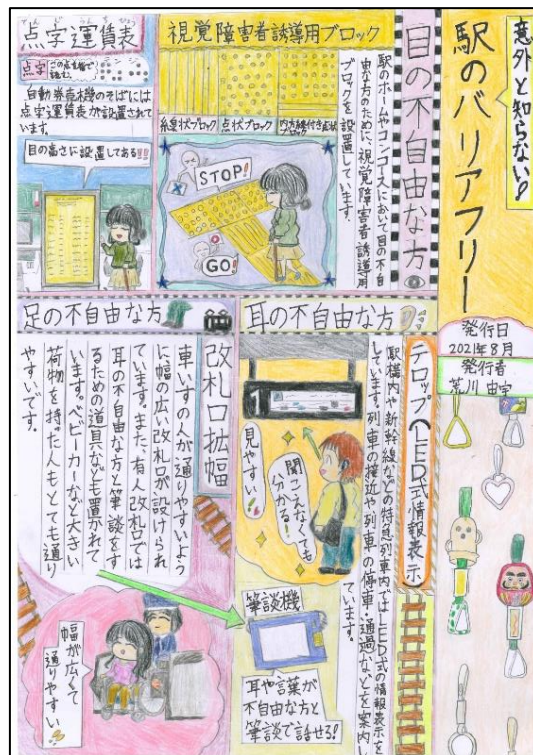 意外と知らない!
駅のバリアフリー
発行日
2021年8月
発行者
荒川 由宇
目の不自由な方
駅のホームやコンコースにおいて目の不自
由な方のために、視覚障害者誘導用
ブロックを設置しています。
視覚障害者誘導用ブロック
線状ブロック
点状ブロック
内方線付き点状
ブロック
STOP!
GO!
てんじうんちんひょう
点字運賃表
点字
この点を指で
読む。
自動券売機のそばには
点字運賃表が設置されて
います。
目の高さに設置してある!!!
耳の不自由な方
テロップ(LED式情報表示
駅構内や新幹線などの特急列車内ではLED式の情報表示を
しています。列車の接近や列車の停車・通過などを案内し
ています。
1
見やすい!
聞こえなくても
分かる!
筆談機
耳や言葉が
不自由な方と
筆談で話せる!!
足の不自由な方
改札口拡幅
車いすの人が通りやすいよう
に幅の広い改札口が設けられ
ています。また、有人改札口では
耳の不自由な方と筆談をす
るための道具なども置かれて
います。ベビーカーなど大きい
荷物を持った人もとても通り
やすいです。
幅が広くて
通りやすい